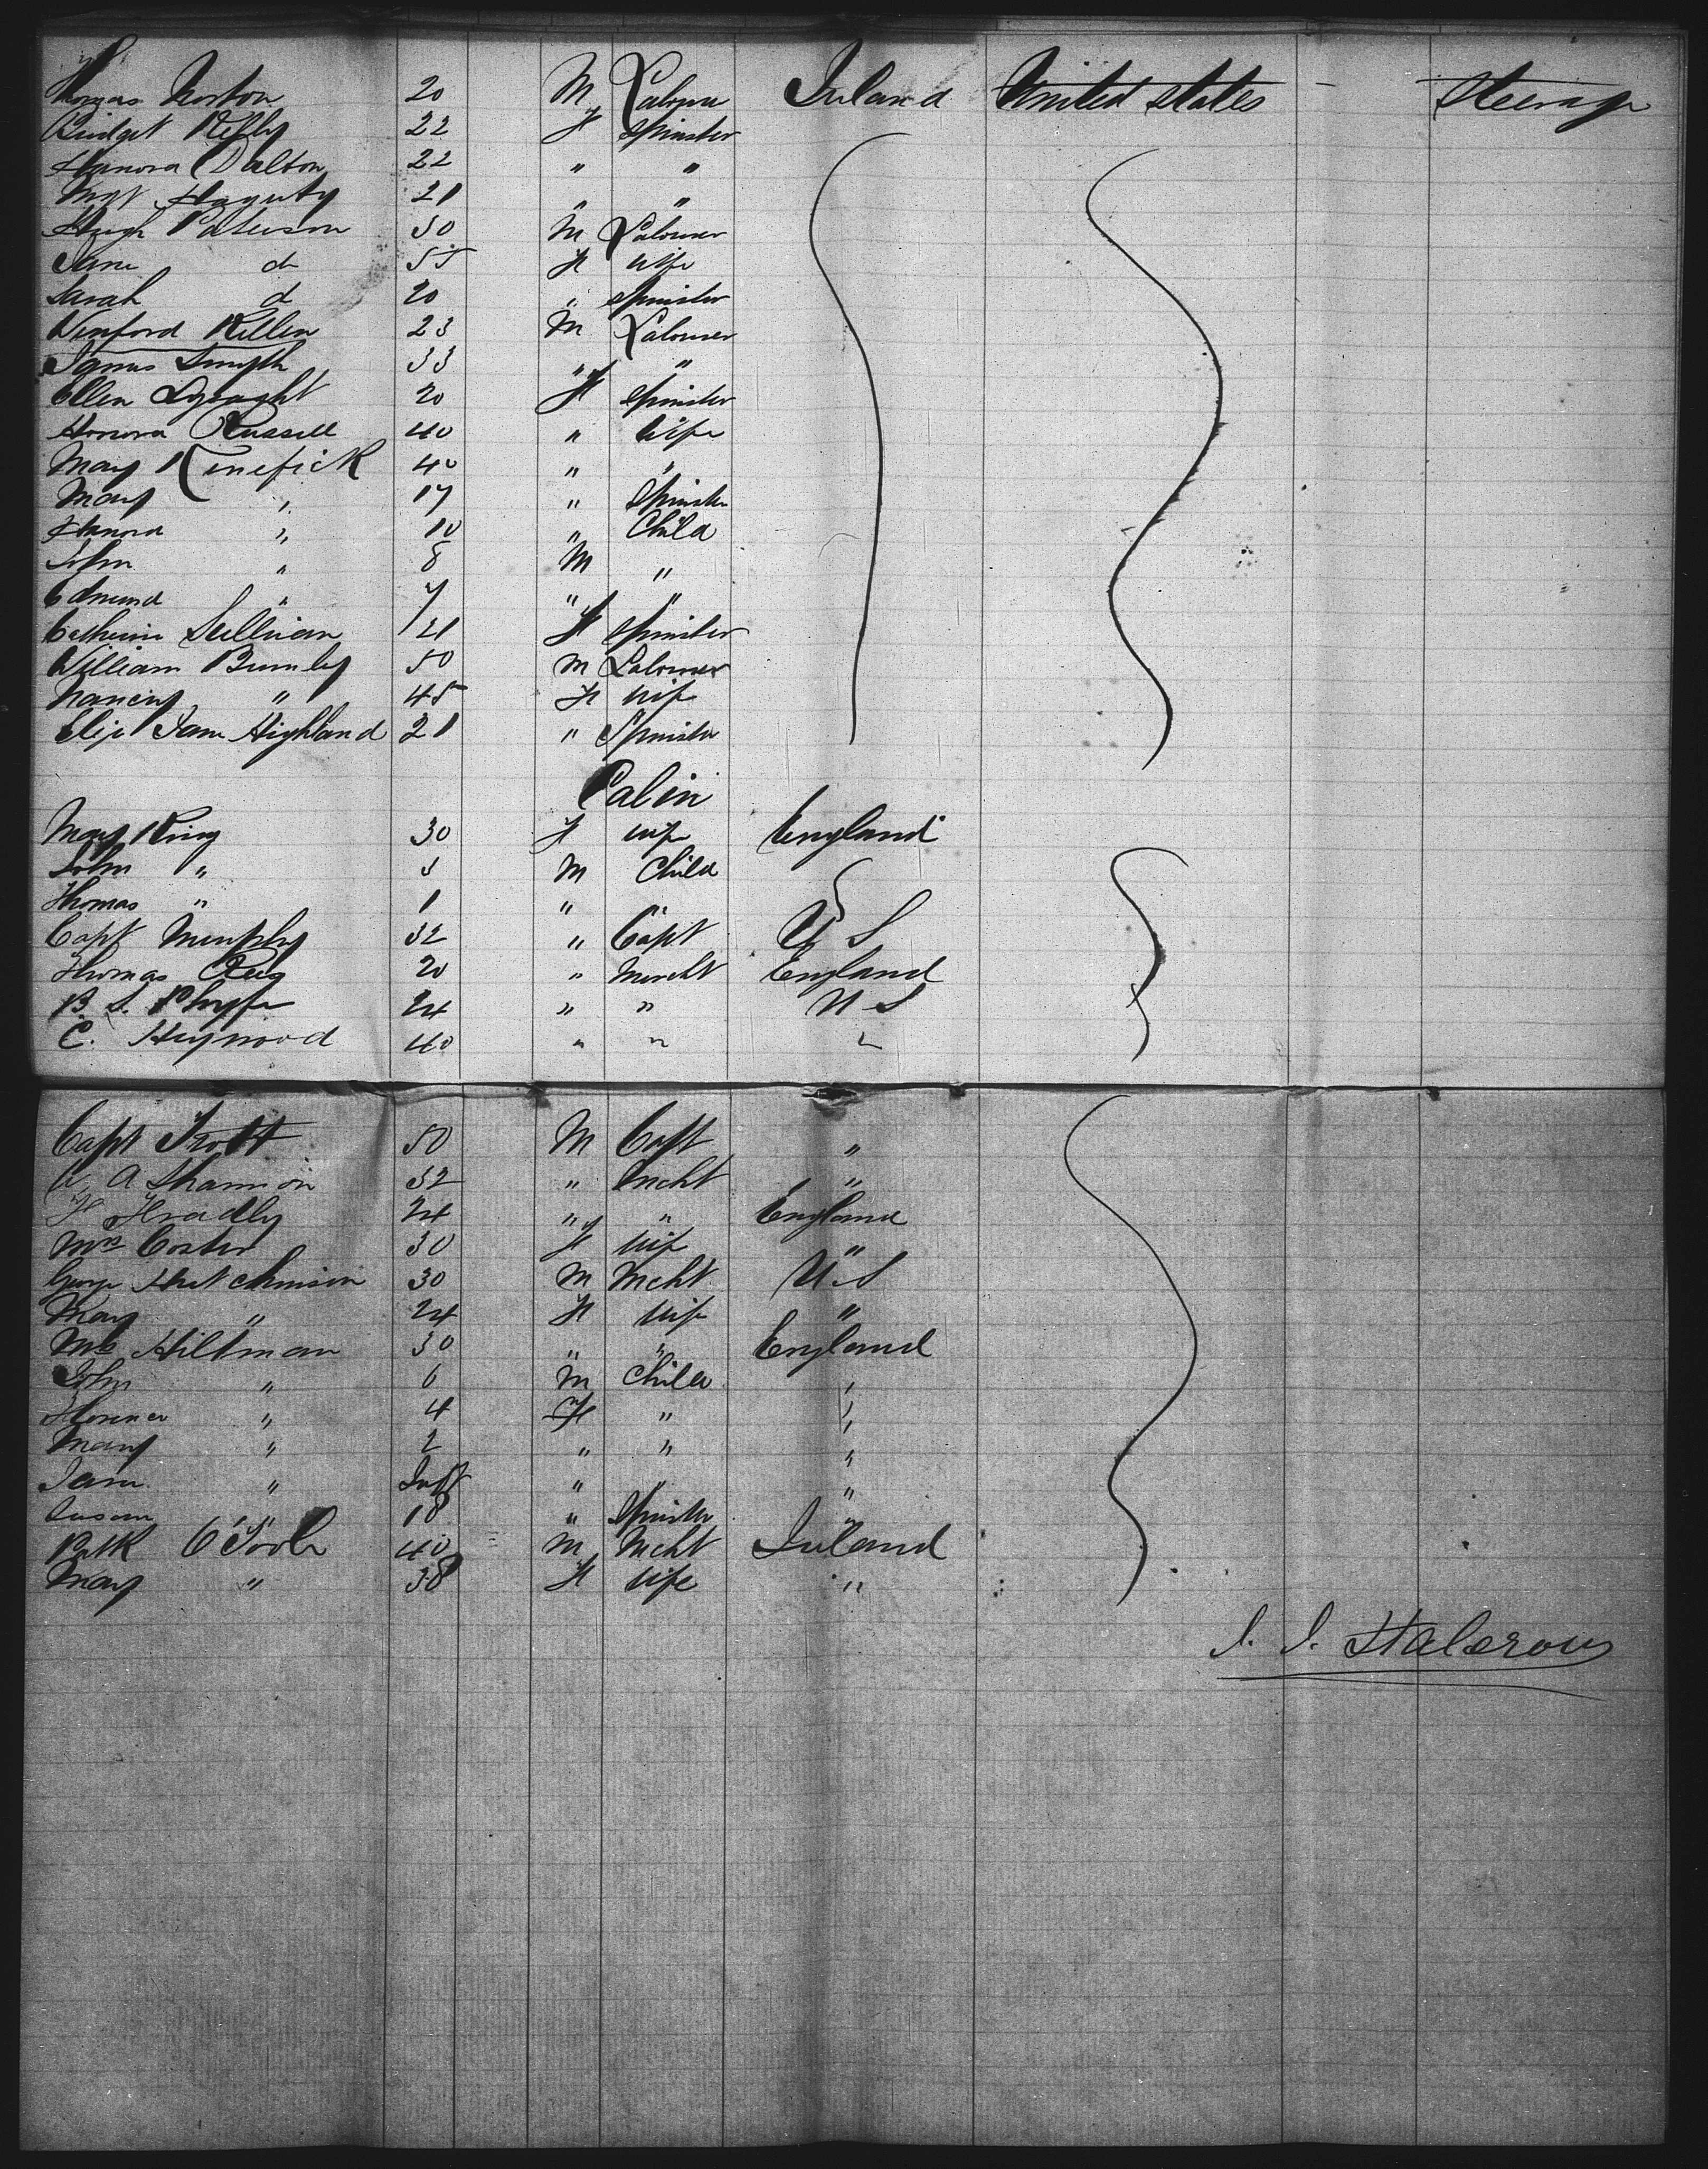 Thomas Norton 20 M Labourer Ireland United States - Steerage
Bridget Kelly 22 F Spinster
Hanora Dalton 22 " "
Mgt Hagerty 21 " "
Hugh Paterson 50 M Labourer
Jane do 55 F Wife
Sarah do 20 " Spinster
Winford Killen 23 M Labourer
James Smyth 33 " "
Ellen Lysaght 20 F Spinster
Honora Russell 40 " Wife
Mary Kenefick 40 " "
Mary " 17 " Spinster
Hanora " 10 " Child
John " 8 M "
Edmund " 7 " "
Catherine Sullivan 21 F Spinster
William Bumley 50 M Labourer
Nancy " 45 F Wife
Eliz Jane Highland 21 " Spinster
Cabin
Mary King 30 F Wife England
John " 3 M Child
Thomas " 1 " "
Capt Murphy 32 " Capt U S
Thomas 20 " Mercht England
B. S. Phyfe 24 " " U S
C. Heywood 40 " " "
Capt Trott 50 M Capt "
A Shannon 32 " Mcht "
H Hradly 24 " " England
Mrs Coster 30 F Wife "
George Hutchinson 30 M Mcht U S
Mary " 24 F Wife "
Mrs Hiltman 30 " " England
John " 6 M Child "
Florence " 4 F " "
Mary " 2 " " "
Jane " Inft " " "
Susan " 18 " Spinster "
Patk O'Toole 40 M Mcht Ireland
Mary " 38 F Wife "
J. J. Halcrow